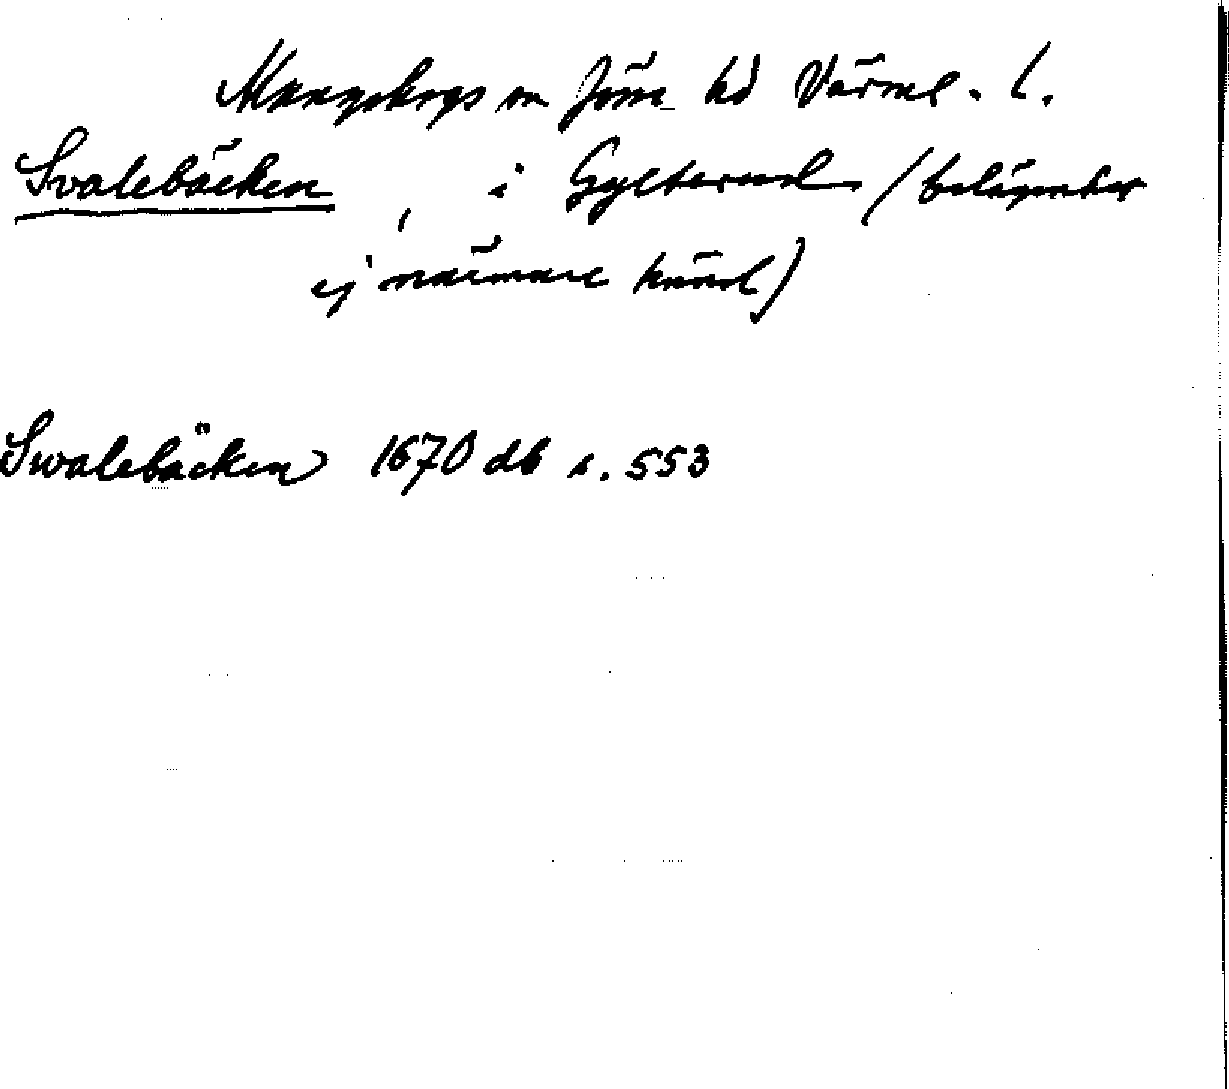 Mangskogs sn Jöss hd Värml. l.
Svalebäcken, i Gylterud (belägenhet
ej närmare känd)
Swalebäcken 1670 db s. 553